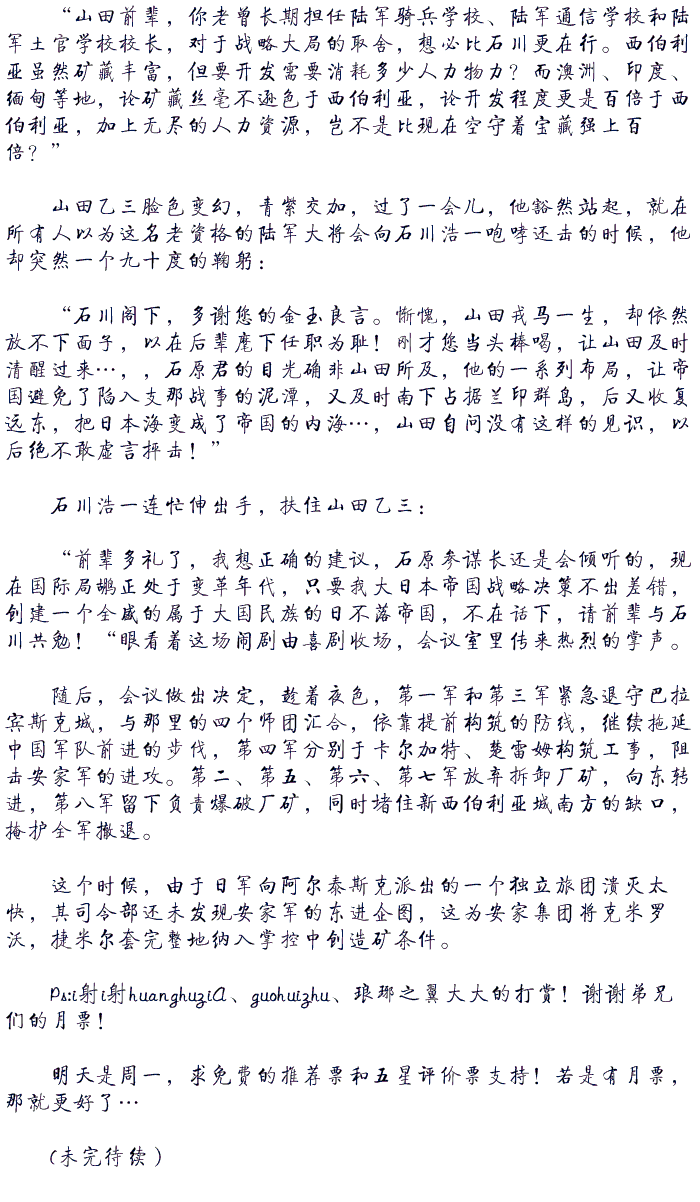 “山田前辈，你老曾长期担任陆军骑兵学校、陆军通信学校和陆
军士官学校校长，对于战略大局的取舍，想必比石川更在行。西伯利
亚虽然矿藏丰富，但要开发需要消耗多少人力物力？而澳洲、印度、
缅甸等地，论矿藏丝毫不逊色于西伯利亚，论开发程度更是百倍于西
伯利亚，加上无尽的人力资源，岂不是比现在空守着宝藏强上百
倍？”
山田乙三脸色变幻，青紫交加，过了一会儿，他豁然站起，就在
所有人以为这名老资格的陆军大将会向石川浩一咆哮还击的时候，他
却突然一个九十度的鞠躬：
“石川阁下，多谢您的金玉良言。惭愧，山田戎马一生，却依然
放不下面子，以在后辈麾下任职为耻！刚才您当头棒喝，让山田及时
清醒过来…，，石原君的目光确非山田所及，他的一系列布局，让帝
国避免了陷入支那战事的泥潭，又及时南下占据兰印群岛，后又收复
远东，把日本海变成了帝国的内海…，山田自问没有这样的见识，以
后绝不敢虚言抨击！”
石川浩一连忙伸出手，扶住山田乙三：
“前辈多礼了，我想正确的建议，石原参谋长还是会倾听的，现
在国际局正处于变革年代，只要我大日本帝国战略决策不出差错，
创建一个全盛的属于大国民族的日不落帝国，不在话下，请前辈与石
川共勉！“眼看着这场闹剧由喜剧收场，会议室里传来热烈的掌声。
随后，会议做出决定，趁着夜色，第一军和第三军紧急退守巴拉
宾斯克城，与那里的四个师团汇合，依靠提前构筑的防线，继续拖延
中国军队前进的步伐，第四军分别于卡尔加特、楚雷姆构筑工事，阻
击安家军的进攻。第二、第五、第六、第七军放弃拆卸厂矿，向东转
进，第八军留下负责爆破厂矿，同时堵住新西伯利亚城南方的缺口，
掩护全军撤退。
这个时候，由于日军向阿尔泰斯克派出的一个独立旅团溃灭太
快，其司令部还未发现安家军的东进企图，这为安家集团将克米罗
沃，捷米尔套完整地纳入掌控中创造矿条件。
Ps:i射i射huanghuziA、guohuizhu、琅琊之翼大大的打赏！谢谢弟兄
们的月票！
明天是周一，求免费的推荐票和五星评价票支持！若是有月票，
那就更好了…
(未完待续）